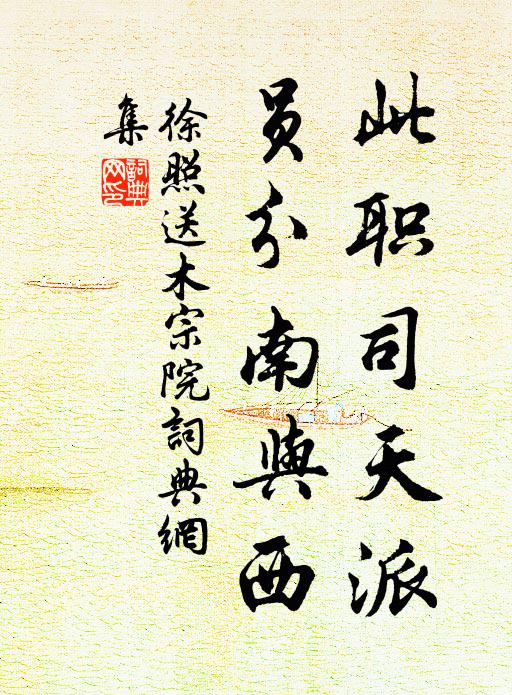 此职司天派
员分南與西
徐照送木宗院詞典網
集
詞典
网印